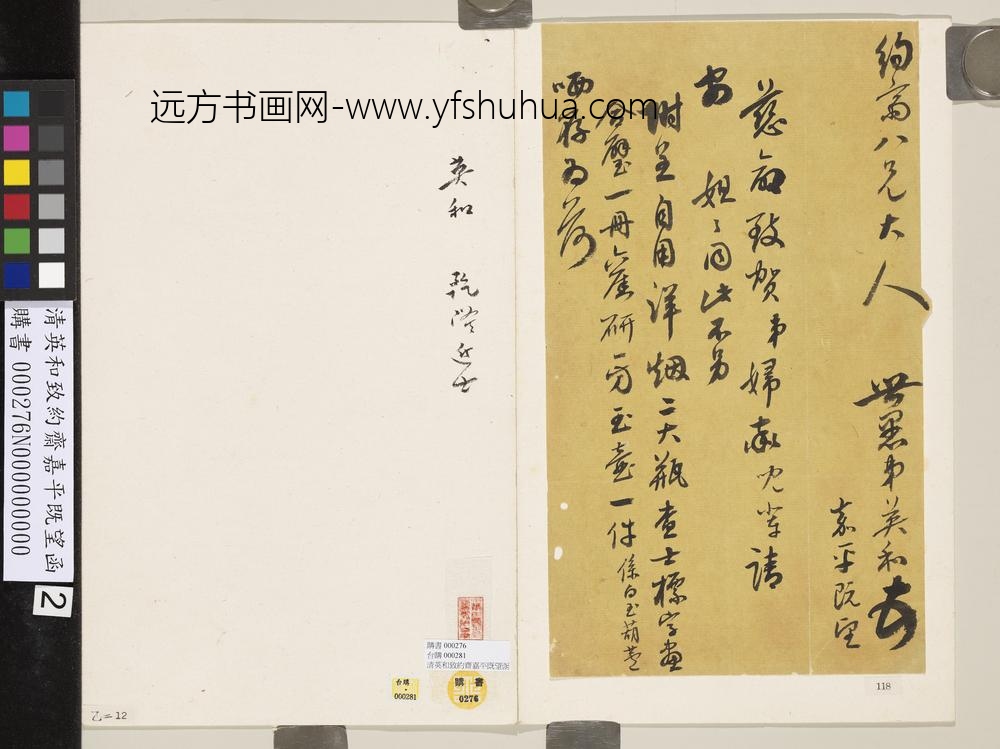 远方书画网-www.yfshuhua.com
約齋八兄大人 世愚弟英和
嘉平既望
慈命致賀弟婦率兒輩請
安 姐〻同此不另
附呈自用洋烟二大瓶查士標字畫
合璧一冊舊研一方玉壺一件係白玉葫蘆
哂存為荷
英和 乾隆進士
清英和致約齋嘉平既望函
購書 000276N000000000
2
購書 000276
台購 000281
清英和致約齋嘉平既望函
台購
000281
購書
0276
118
乙=12